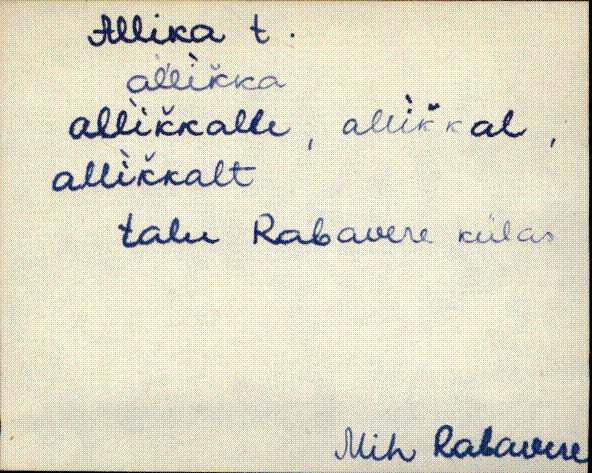 Allika t.
allìk̆ka
allìk̆kalle, allìk̆kal,
allìk̆kalt
talu Rabavere külas
Mih Rabavere